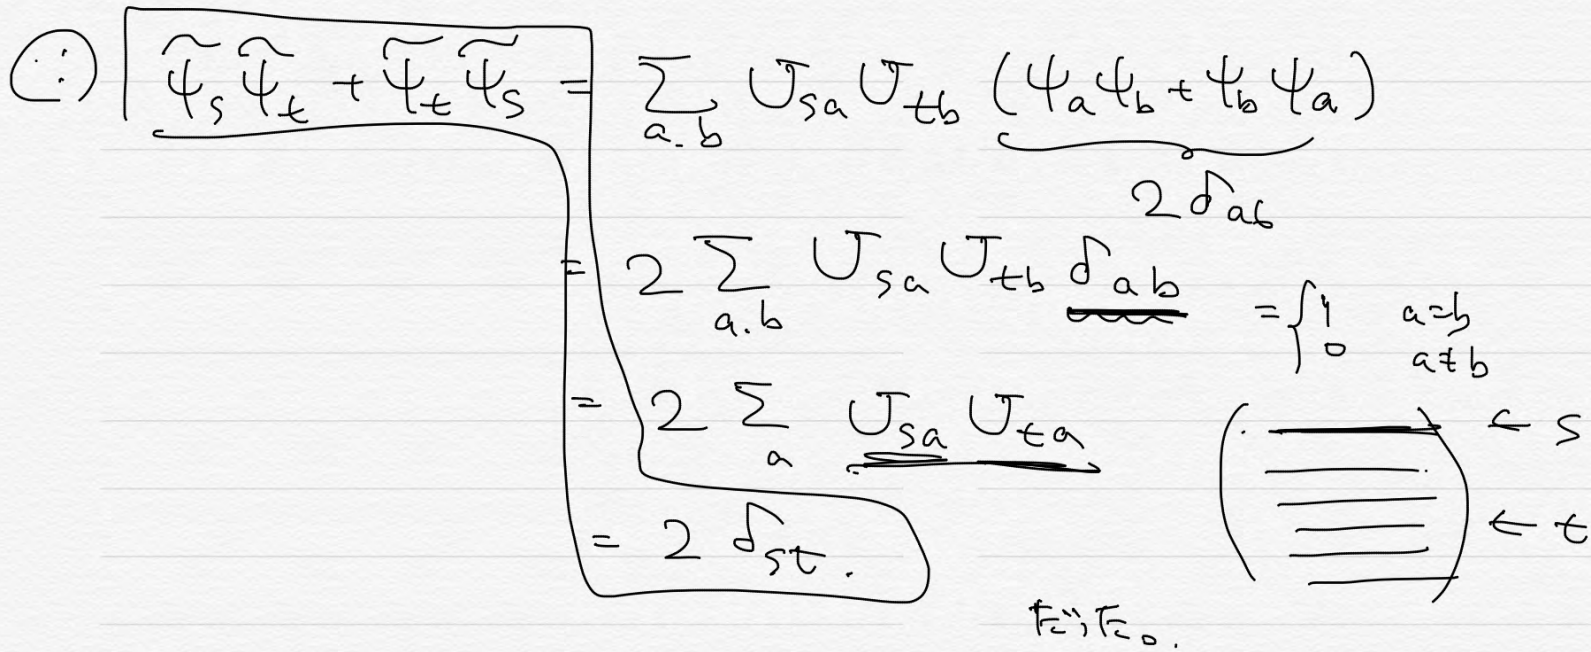 ∵) ψ̃_s ψ̃_t + ψ̃_t ψ̃_s = Σ_{a.b} U_{sa} U_{tb} (ψ_a ψ_b + ψ_b ψ_a)
2δ_{ab}
= 2 Σ_{a.b} U_{sa} U_{tb} δ_{ab} = { 1 a=b
0 a≠b
= 2 Σ_a U_{sa} U_{ta} ← s
= 2 δ_{st}. ← t